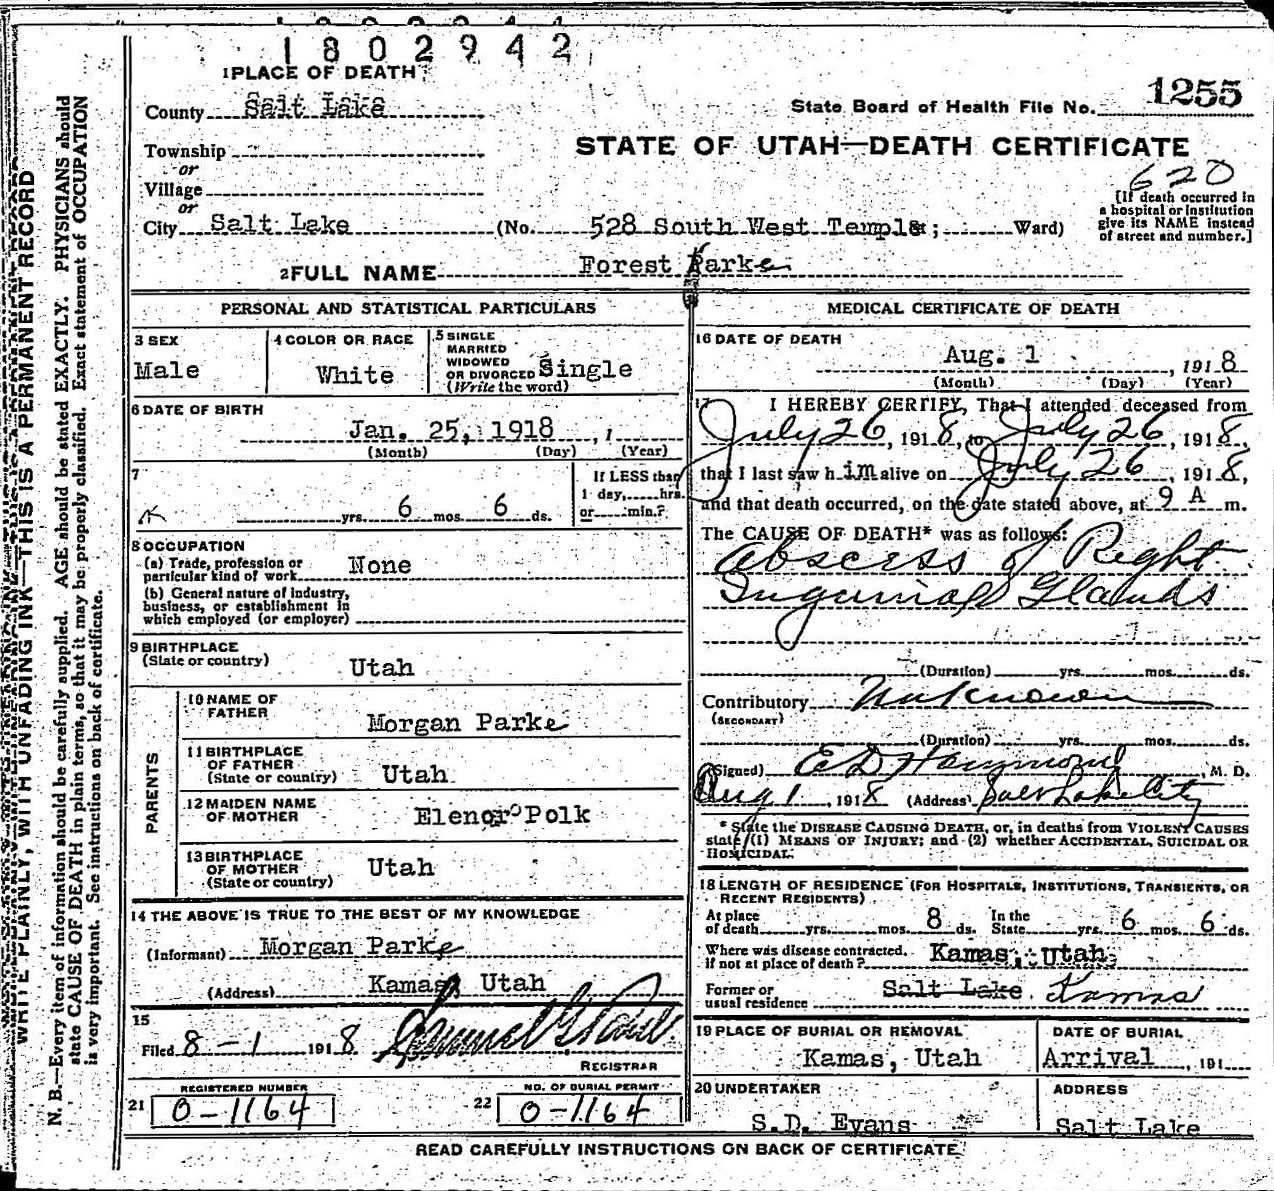 1802942
1 PLACE OF DEATH
County Salt Lake
State Board of Health File No. 1255
Township
or
Village
or
STATE OF UTAH—DEATH CERTIFICATE
620
[If death occurred in
a hospital or institution
give its NAME instead
of street and number.]
City Salt Lake (No. 528 South West Temple; Ward)
2 FULL NAME Forest Parke
PERSONAL AND STATISTICAL PARTICULARS
3 SEX
Male
4 COLOR OR RACE
White
5 SINGLE
MARRIED
WIDOWED
OR DIVORCED Single
(Write the word)
6 DATE OF BIRTH
Jan. 25, 1918
(Month) (Day) (Year)
7
yrs. 6 mos. 6 ds.
If LESS than
1 day, hrs.
or min.?
8 OCCUPATION
(a) Trade, profession or
particular kind of work None
(b) General nature of industry,
business, or establishment in
which employed (or employer)
9 BIRTHPLACE
(State or country)
Utah
PARENTS
10 NAME OF
FATHER
Morgan Parke
11 BIRTHPLACE
OF FATHER
(State or country) Utah
12 MAIDEN NAME
OF MOTHER Elenor Polk
13 BIRTHPLACE
OF MOTHER
(State or country) Utah
14 THE ABOVE IS TRUE TO THE BEST OF MY KNOWLEDGE
(Informant) Morgan Parke
(Address) Kamas, Utah
15
Filed 8-1 1918
REGISTRAR
REGISTERED NUMBER
21 0-1164
NO. OF BURIAL PERMIT
22 0-1164
MEDICAL CERTIFICATE OF DEATH
16 DATE OF DEATH
Aug. 1, 1918
(Month) (Day) (Year)
17 I HEREBY CERTIFY, That I attended deceased from
July 26, 1918, to July 26, 1918,
that I last saw him alive on July 26, 1918,
and that death occurred, on the date stated above, at 9 A m.
The CAUSE OF DEATH* was as follows:
Abscess of Right
Inguinal Glands
(Duration) yrs. mos. ds.
Contributory Unknown
(SECONDARY)
(Duration) yrs. mos. ds.
(Signed) E D Hammond, M. D.
Aug 1, 1918 (Address) Salt Lake City
* State the DISEASE CAUSING DEATH, or, in deaths from VIOLENT CAUSES
state (1) MEANS OF INJURY; and (2) whether ACCIDENTAL, SUICIDAL OR
HOMICIDAL.
18 LENGTH OF RESIDENCE (FOR HOSPITALS, INSTITUTIONS, TRANSIENTS, OR
RECENT RESIDENTS)
At place
of death yrs. mos. 8 ds. In the
State yrs. 6 mos. 6 ds.
Where was disease contracted,
if not at place of death? Kamas, Utah
Former or
usual residence Salt Lake. Kamas
19 PLACE OF BURIAL OR REMOVAL
Kamas, Utah
DATE OF BURIAL
Arrival, 191
20 UNDERTAKER
S.D. Evans
ADDRESS
Salt Lake
READ CAREFULLY INSTRUCTIONS ON BACK OF CERTIFICATE
WRITE PLAINLY, WITH UNFADING INK—THIS IS A PERMANENT RECORD
N. B.—Every item of information should be carefully supplied. AGE should be stated EXACTLY. PHYSICIANS should
state CAUSE OF DEATH in plain terms, so that it may be properly classified. Exact statement of OCCUPATION
is very important. See instructions on back of certificate.